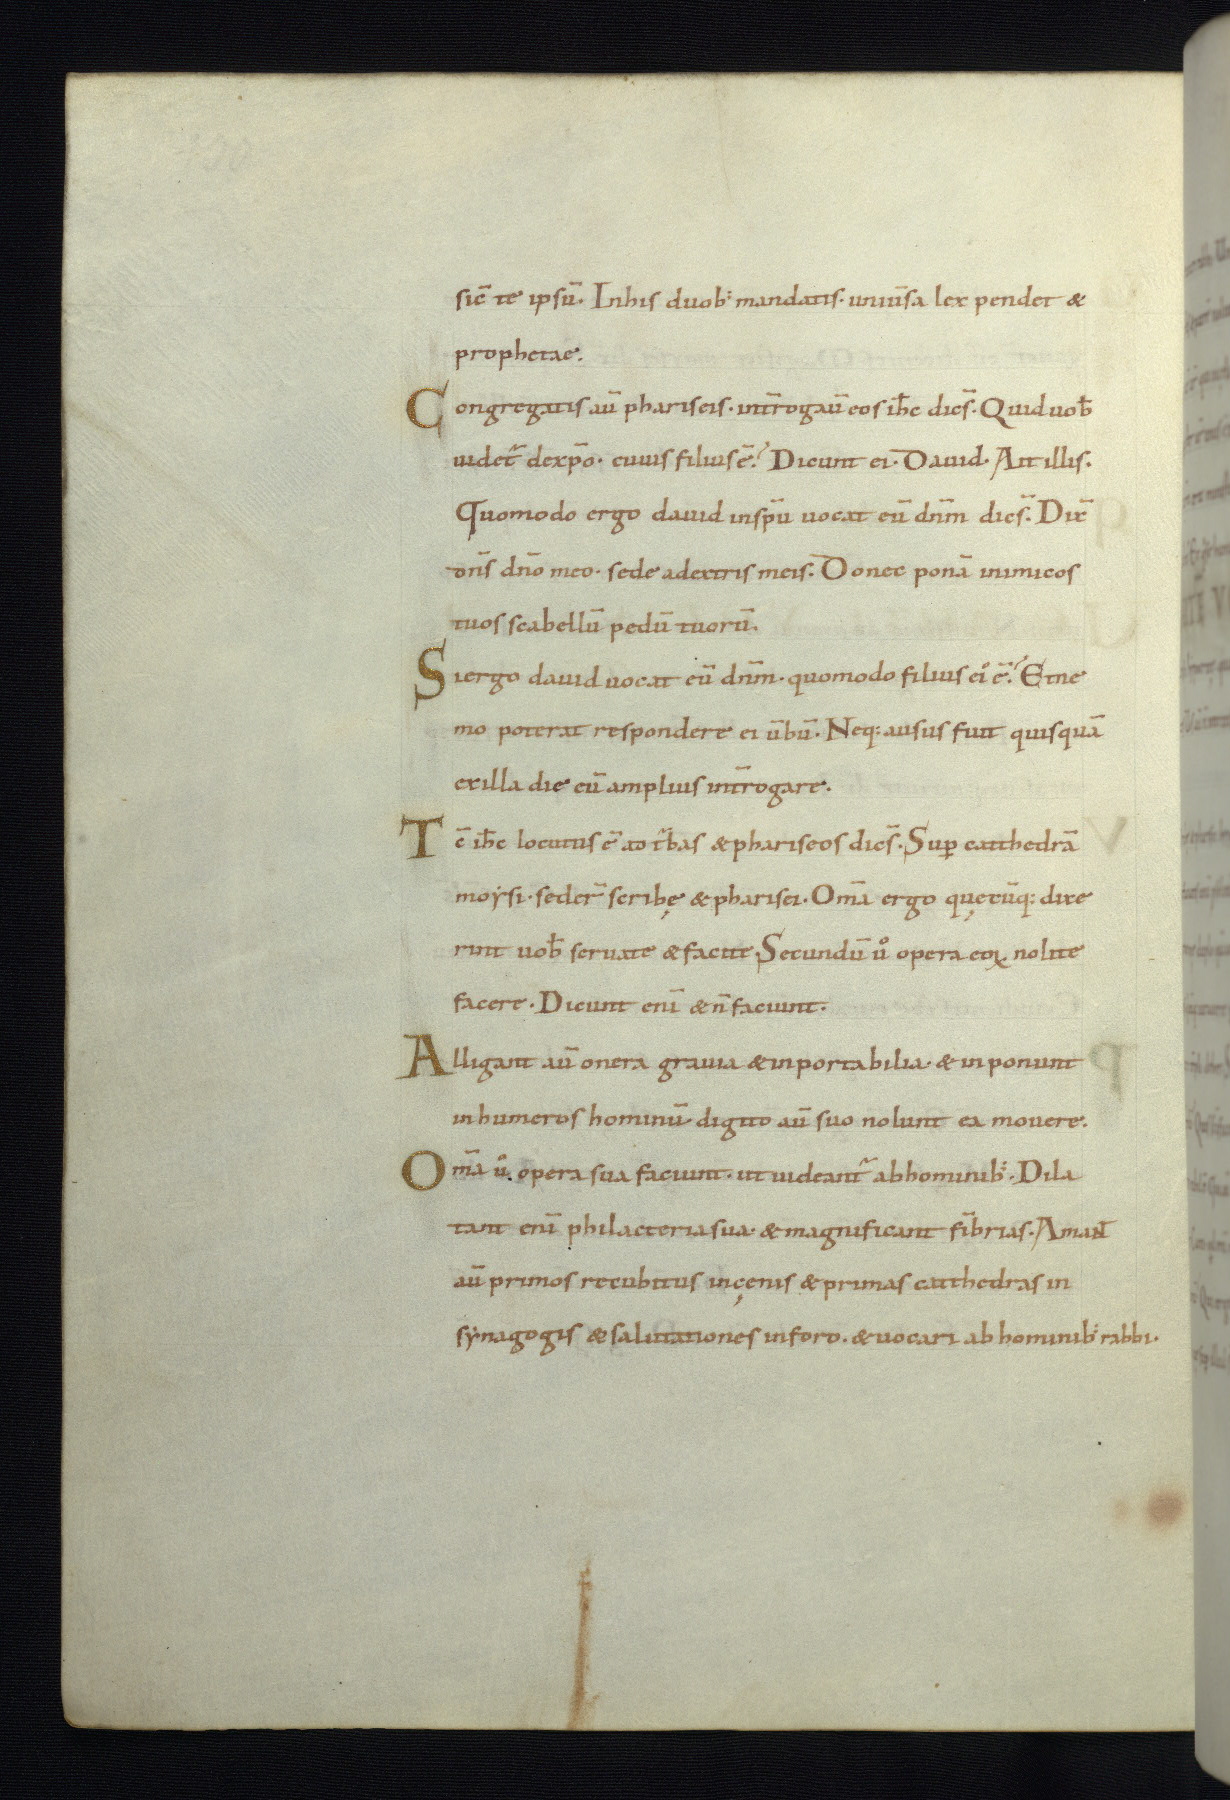 sic̄ te ipsū. In his duob; mandatis. uniūsa lex pendet &
prophetae.
Congregatis aū phariseis. int̄rogaū eos ih̄c dic̄s. Quid uob̄
uidet̄ de xp̄o. cuius filius ē? Dicunt ei. Dauid. Ait illis.
Quomodo ergo dauid in sp̄u uocat eū dn̄m dic̄s. Dix̄
dn̄s dn̄o meo. sede a dextris meis. Donec ponā inimicos
tuos scabellū pedū tuorū.
Si ergo dauid uocat eū dn̄m. quomodo filius ei' ē? Et ne
mo poterat respondere ei ūbū. Neq; ausus fuit quisquā
ex illa die eū amplius int̄rogare.
Tc̄ ih̄c locutus ē ad t̄bas & phariseos dic̄s. Sup̄ catthedrā
moẏsi. seder̄ scribę & pharisei. Om̄a ergo quęcūq; dixe
rint uob̄ seruate & facite. Secundū ů opera eoꝝ nolite
facere. Dicunt enī & n̄ faciunt.
Alligant aū onera grauia & inportabilia. & inponunt
in humeros hominū. digito aū suo nolunt ea mouere.
Om̄a ů opera sua faciunt. ut uideant̄ ab hominib;. Dila
tant enī philacteria sua. & magnificant fībrias. Amant
aū primos recubitus in cęnis & primas catthedras in
sẏnagogis & salutationes in foro. & uocari ab hominib; rabbi.